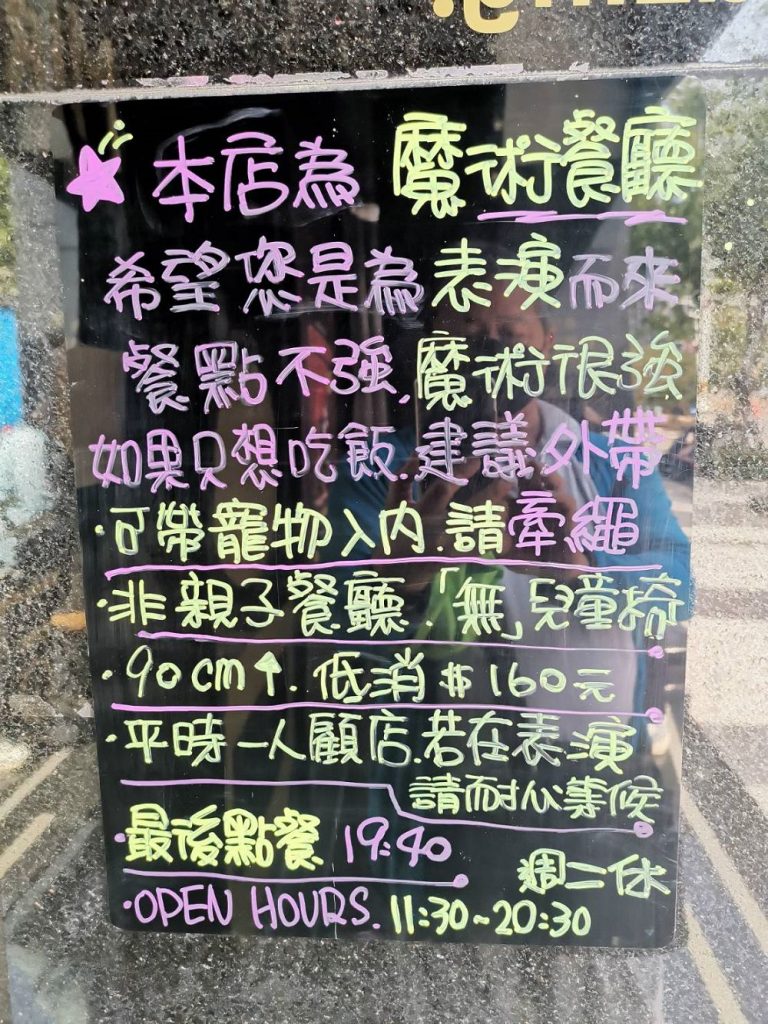 本店為 魔術餐廳
希望您是為表演而來
餐點不強,魔術很強
如果只想吃飯.建議外帶
·可帶寵物入內.請牽繩
·非親子餐廳.「無」兒童椅
·90cm↑.低消$160元
·平時一人顧店.若在表演
請耐心等候
·最後點餐 19:40
週二休
·OPEN HOURS. 11:30~20:30